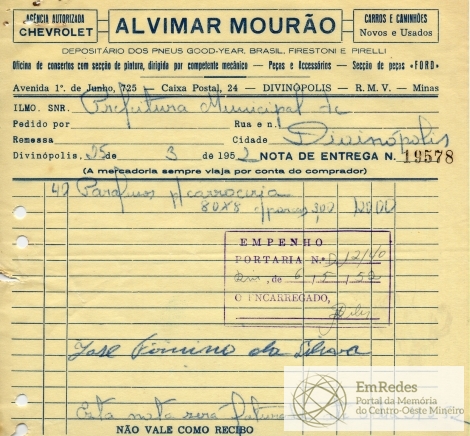 AGÊNCIA AUTORIZADA
CHEVROLET
ALVIMAR MOURÃO
CARROS E CAMINHÕES
Novos e Usados
DEPOSITÁRIO DOS PNEUS GOOD-YEAR, BRASIL, FIRESTONI E PIRELLI
Oficina de consertos com secção de pintura, dirigida por competente mecânico — Peças e Accessórios — Secção de peças «FORD»
Avenida 1º. de Junho, 725 — Caixa Postal, 24 — DIVINÓPOLIS — R. M. V. — Minas
ILMO. SNR. Prefeitura Municipal de
Pedido por Rua e n.
Remessa Cidade Divinópolis
Divinópolis, 25 de 3 de 1952 NOTA DE ENTREGA N. 19578
(A mercadoria sempre viaja por conta do comprador)
40 Parafusos p/ carroceria
80X8 3,00 120,00
EMPENHO
PORTARIA N.º
de 6/5/52
O ENCARREGADO,
José da Silva
Esta nota será
NÃO VALE COMO RECIBO
EmRedes
Portal da Memória
do Centro-Oeste Mineiro